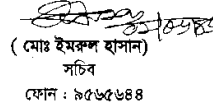 ( মোঃ ইমরুল হাসান)
সচিব
ফোন : ৯৫৬৫৬৪৪